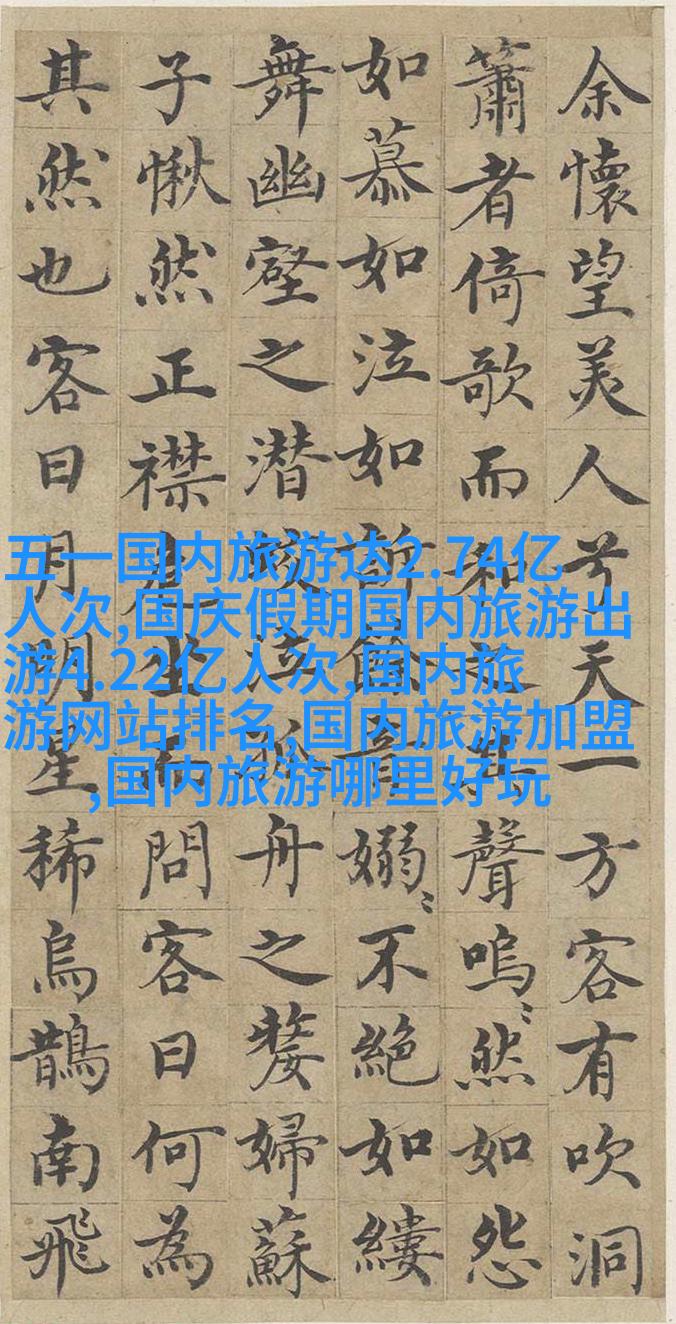 余懷望美人兮天一方客有吹洞
簫者倚歌而和之其聲嗚〻然如怨
如慕如泣如訴餘音嫋〻不絕如縷
舞幽壑之潛蛟泣孤舟之嫠婦蘇
子愀然正襟危坐而問客曰何為
其然也客曰月明星稀烏鵲南飛
五一国内旅游达2.74亿
人次,国庆假期国内旅游出
游4.22亿人次,国内旅
游网站排名,国内旅游加盟
,国内旅游哪里好玩